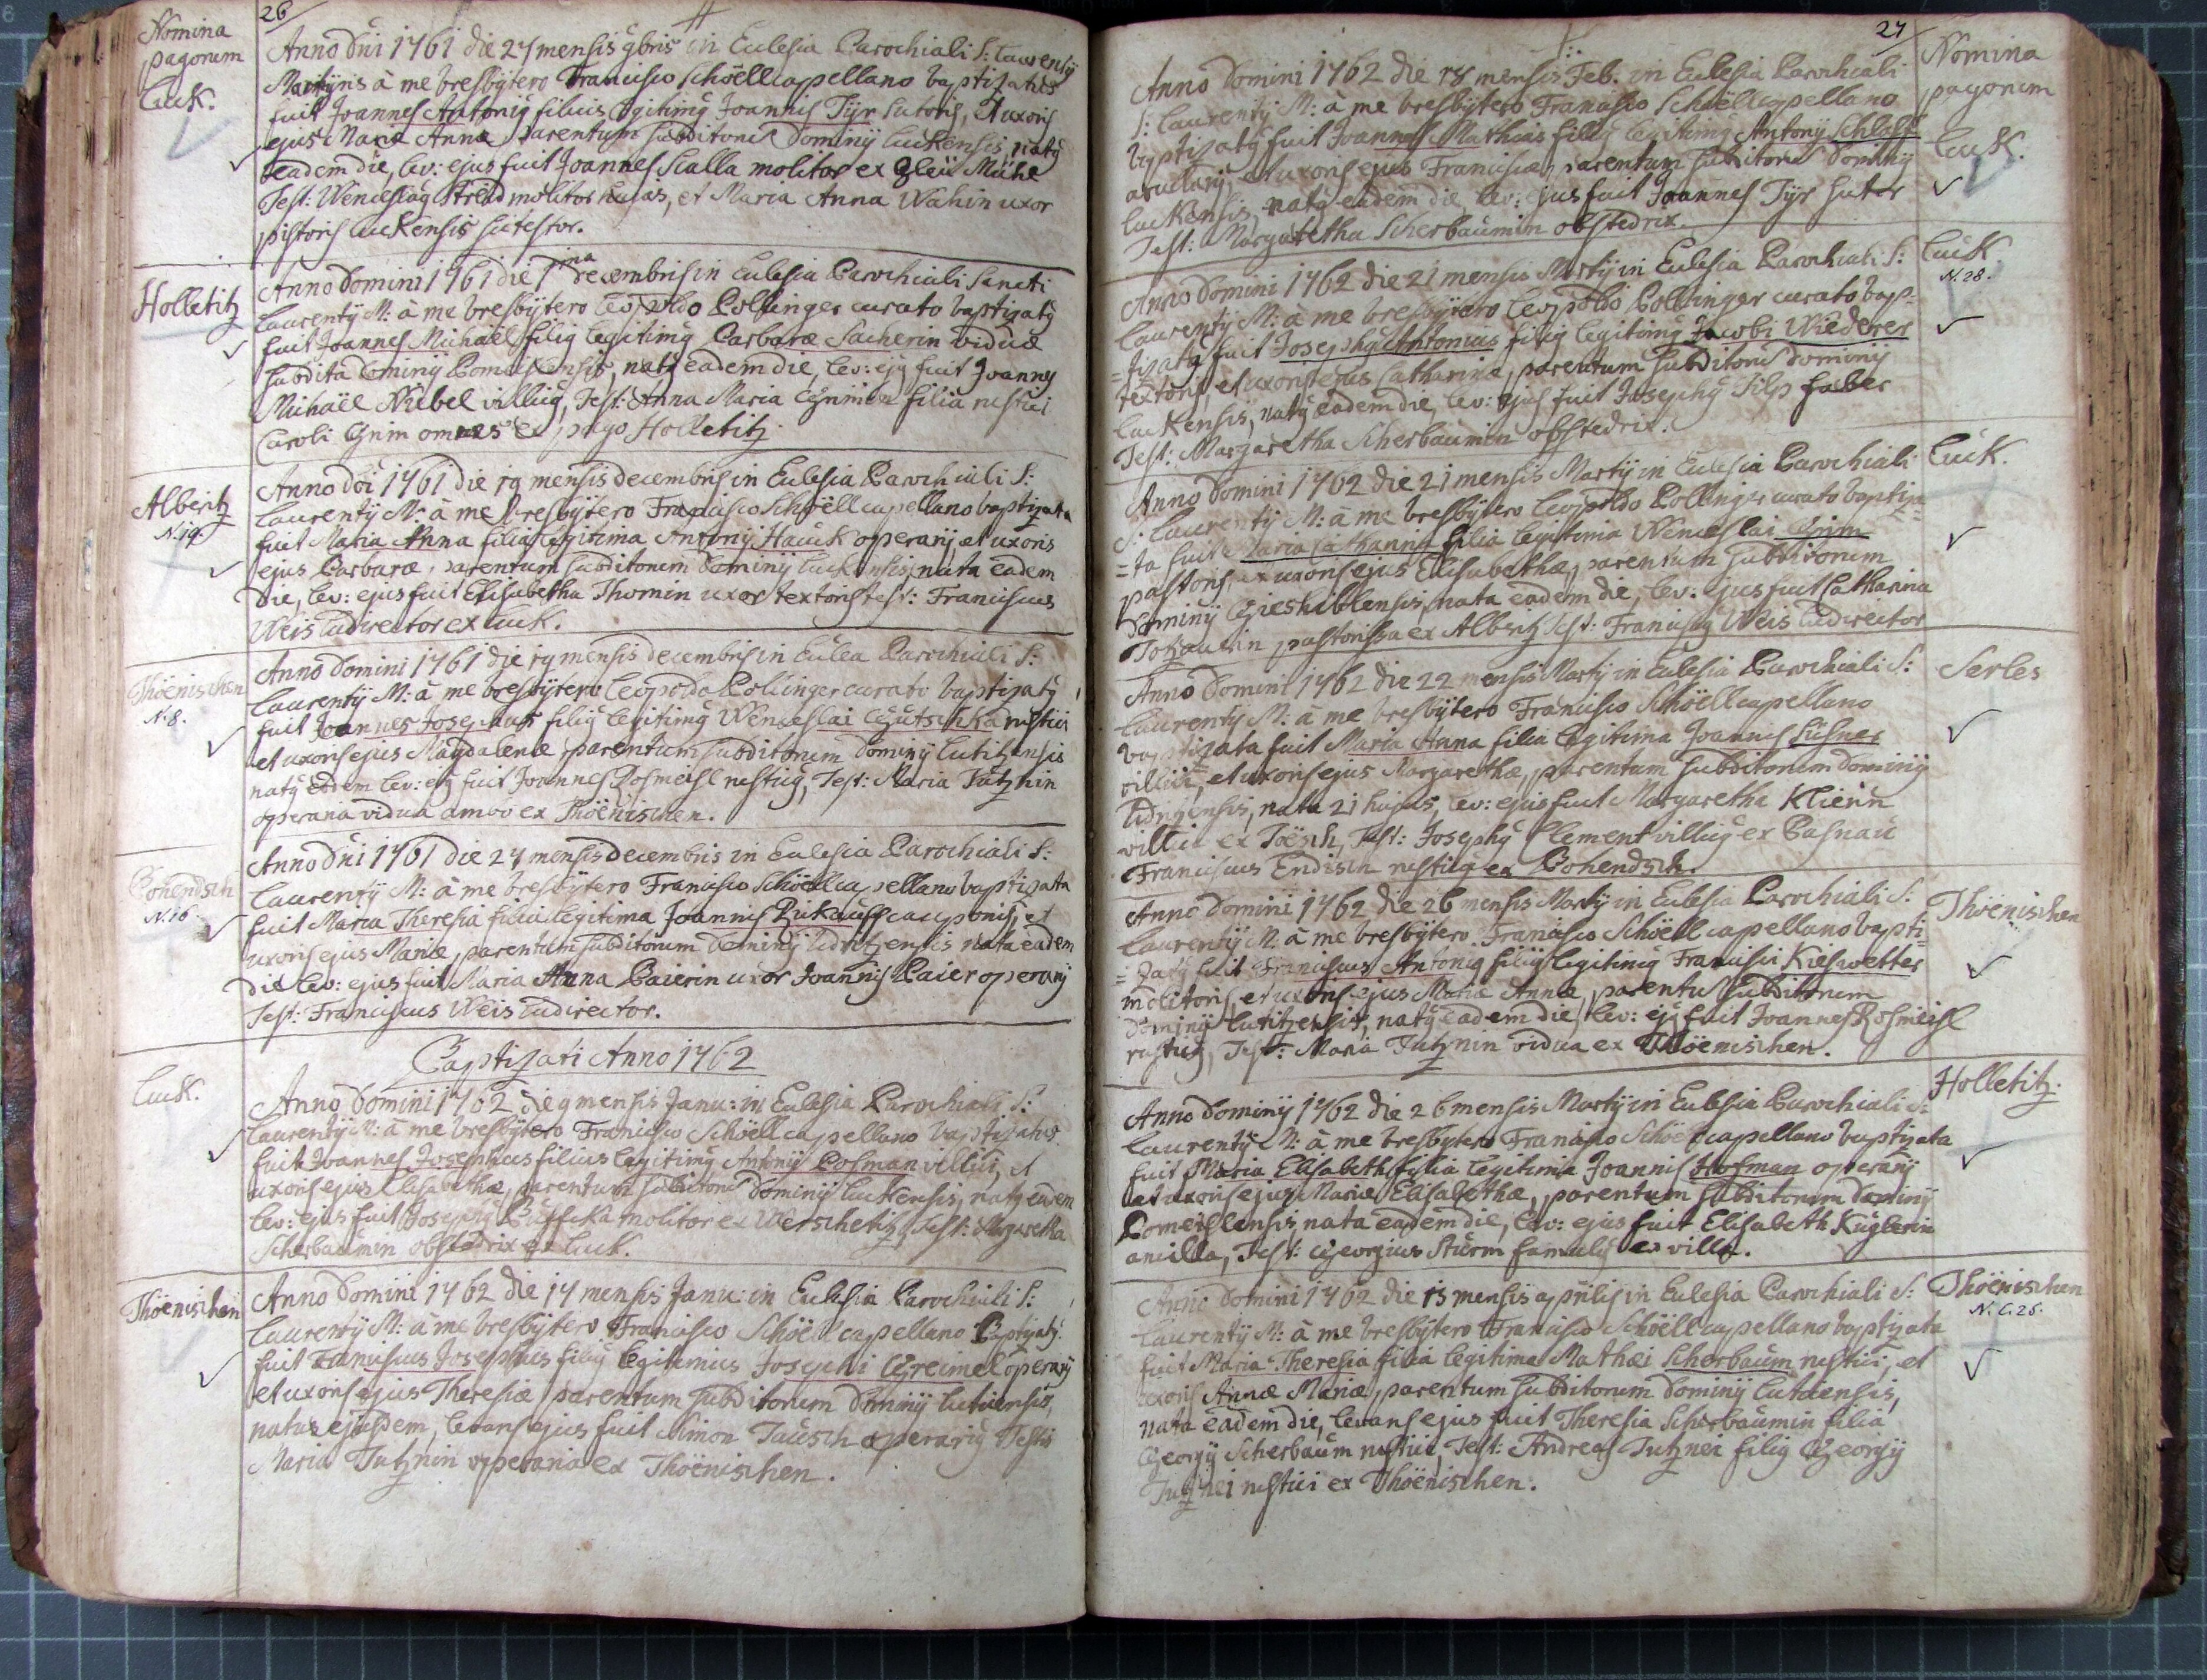 26
Nomina
pagorum
Luck.
Anno Dni 1761 die 27 mensis 9bris in Ecclesia Parochiali S: Laurentÿ
Martÿris à me Presbÿtero Francisco Schöell capellano baptizatus
fuit Joannes Antonig filius legitimg Joannis Tÿr sutoris, et uxoris
ejus Mariæ Annæ parentum subditorum Dominÿ Luckensis, natg
eadem die, lev: ejus fuit Joannes Scalla molitor ex Mühl
Test: Wenceslag molitor et Maria Anna Wahin uxor
pistoris Luckensis
Holletitz
Anno Domini 1761 die 1ma Decembris in Ecclesia Parochiali Sancti
Laurentÿ M: à me Presbÿtero Leopoldo Pollinger curato baptizatg
fuit Joannes Michaël filig legitimg Barbaræ Sacherin viduæ
subdita Dominÿ natg eadem die, lev: ejg fuit Joannes
Michaël Niebel villicg, Test: Anna Maria Grimin filia rustici
Caroli Grim omnes ex pago Holletitz.
Alberitz
N. 19.
Anno Dōi 1761 die 19 mensis decembris in Ecclesia Parochiali S:
Laurentÿ M: à me Presbÿtero Francisco Schöell capellano baptizata
fuit Maria Anna filia legitima Antonÿ Hauck operarÿ, et uxoris
ejus Barbaræ, parentum subditorum Dominÿ Luckensis, nata eadem
die, lev: ejus fuit Elisabetha Thomin uxor textoris test: Franciscus
Weis ludirector ex Luck.
Thöenischen
N. 8.
Anno Domini 1761 die 19 mensis decembris in Ecclea Parochiali S:
Laurentÿ M: à me Presbÿtero Leopoldo Pollinger curato baptizatg
fuit Joannes Josephus filig legitimg Wenceslai Gutschka rustici
et uxoris ejus Magdalenæ parentum subditorum Dominÿ Lutitzensis
natg eodem lev: ejg fuit Joannes Rosmeisl rusticg, Test: Maria Tutznin
operaria vidua ambo ex Thöenischen.
Pohendsch
N. 16.
Anno Dni 1761 die 27 mensis decembris in Ecclesia Parochiali S:
Laurentÿ M: à me Presbÿtero Francisco Schöell capellano baptizata
fuit Maria Theresia filia legitima Joannis Rickauff cauponis, et
uxoris ejus Mariæ, parentum subditorum Dominÿ Udritzensis nata eadem
die lev: ejus fuit Maria Anna Baierin uxor Joannis Baier operarÿ
Test: Franciscus Weis ludirector.
Baptizati Anno 1762
Luck.
Anno Domini 1762 die 9 mensis Janu: in Ecclesia Parochiali S:
Laurentÿ M: à me Presbÿtero Francisco Schöell capellano baptizatus
fuit Joannes Josephus filius legitimg Antonÿ Posman villici, et
uxoris ejus Elisabethæ, parentum subditorum Dominÿ Luckensis, natg eadem
lev: ejus fuit Josephg Putschka molitor ex Werscheditz, Test: Margaretha
Scherbaumin obstedrix ex Luck.
Thöenischen
Anno Domini 1762 die 14 mensis Janu: in Ecclesia Parochiali S:
Laurentÿ M: à me Presbÿtero Francisco Schöell capellano Baptizatg
fuit Franciscus Josephus filig legitimus Josephi Greimel operarÿ
et uxoris ejus Theresiæ parentum subditorum Dominÿ
natus ejusdem, levans ejus fuit Simon Tausch operarig Testis
Maria Tutznin operaria ex Thöenischen.
27
Nomina
pagorum
Luck.
Anno Domini 1762 die 18 mensis Feb. in Ecclesia Parochiali
S: Laurentÿ M: à me Presbÿtero Francisco Schöell capellano
baptizatg fuit Joannes Mathias filig legitimg Antonÿ Schlaff
et uxoris ejus Franciscæ, parentum subditorum Dominÿ
Luckensis, natg eadem die, lev: ejus fuit Joannes Tÿr sutor
Test: Margaretha Scherbaumin obstedrix.
Luck.
N. 28.
Anno Domini 1762 die 21 mensis Martÿ in Ecclesia Parochiali S:
Laurentÿ M: à me Presbÿtero Leopoldo Pollinger curato bap=
=tizatg fuit Josephg Antonius filig legitimg Jacobi Wiederer
textoris, et uxoris ejus Catharinæ, parentum subditorum Dominÿ
Luckensis, natg eadem die, lev: ejus fuit Josephg Filp faber
Test: Margaretha Scherbaumin obstedrix.
Luck.
Anno Domini 1762 die 21 mensis Martÿ in Ecclesia Parochiali
S: Laurentÿ M: à me Presbÿtero Leopoldo Pollinger curato baptiza=
=ta fuit Maria Catharina filia legitima Wenceslai Grim
pastoris, et uxoris ejus Elisabethæ, parentum subditorum
Dominÿ Gieshiblensis, nata eadem die, lev: ejus fuit Catharina
Totzauerin pastorissa ex Alberitz Test: Franciscg Weis ludirector
Serles
Anno Domini 1762 die 22 mensis Martÿ in Ecclesia Parochiali S:
Laurentÿ M: à me Presbÿtero Francisco Schöell capellano
baptizata fuit Maria Anna filia legitima Joannis Susner
villici, et uxoris ejus Margarethæ, parentum subditorum Dominÿ
Udritzensis, nata 21 hujus, lev: ejus fuit Margaretha Klienn
villica ex Töesch, Test: Josephg Clement villicg ex Pasnau
Franciscus Endisch rusticg ex Pohendsch.
Thöenischen
Anno Domini 1762 die 26 mensis Martÿ in Ecclesia Parochiali S:
Laurentÿ M: à me Presbÿtero Francisco Schöell capellano bapti=
=zatg fuit Franciscus Antonig filig legitimg Francisci Kieswetter
molitoris, et uxoris ejus Mariæ Annæ, parentum subditorum
Dominÿ Lutitzensis, natg eadem die, lev: ejg fuit Joannes Rosmeisl
rusticg, Test: Maria Tutznin vidua ex Thöenischen.
Holletitz.
Anno Dominÿ 1762 die 26 mensis Martÿ in Ecclesia Parochiali S:
Laurentÿ M: à me Presbytero Francisco Schöell capellano baptizata
fuit Maria Elisabeth filia legitima Joannis Hofman operarÿ
et uxoris ejus Mariæ Elisabethæ, parentum subditorum Dominÿ
Pomeislensis nata eadem die, lev: ejus fuit Elisabeth Kuglerin
ancilla, Test: Georgius Sturm famulg ex villa.
Thöenischen
N. C. 26.
Anno Domini 1762 die 15 mensis aprilis in Ecclesia Parochiali S:
Laurentÿ M: à me Presbÿtero Francisco Schöell capellano baptizata
fuit Maria Theresia filia legitima Mathæi Scherbaum rustici, et
uxoris Annæ Mariæ, parentum subditorum Dominÿ
nata eadem die, levans ejus fuit Theresia Scherbaumin filia
Georgÿ Scherbaum rustici, Test: Andreas Tutznei filig Georgÿ
Tutznei rustici ex Thöenischen.